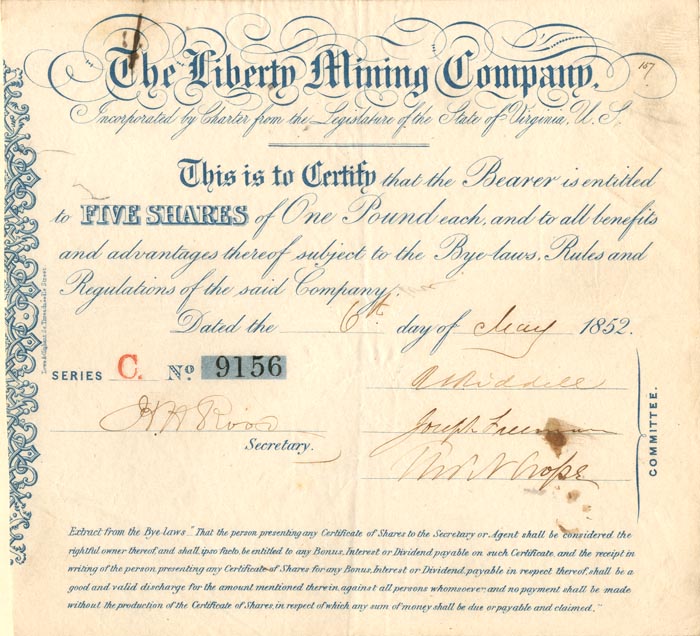 157
The Liberty Mining Company.
Incorporated by Charter from the Legislature of the State of Virginia, U.S.
This is to Certify that the Bearer is entitled
to FIVE SHARES of One Pound each, and to all benefits
and advantages thereof subject to the Bye-laws, Rules and
Regulations of the said Company.
Dated the 6th day of May 1852.
SERIES C. No. 9156
Riddell
Secretary.
Joseph Freeman
COMMITTEE.
Extract from the Bye-laws "That the person presenting any Certificate of Shares to the Secretary or Agent shall be considered the
rightful owner thereof, and shall, ipso facto, be entitled to any Bonus, Interest or Dividend payable on such Certificate, and the receipt in
writing of the person presenting any Certificate of Shares for any Bonus, Interest or Dividend, payable in respect thereof, shall be a
good and valid discharge for the amount mentioned therein, against all persons whomsoever; and no payment shall be made
without the production of the Certificate of Shares, in respect of which any sum of money shall be due or payable and claimed."